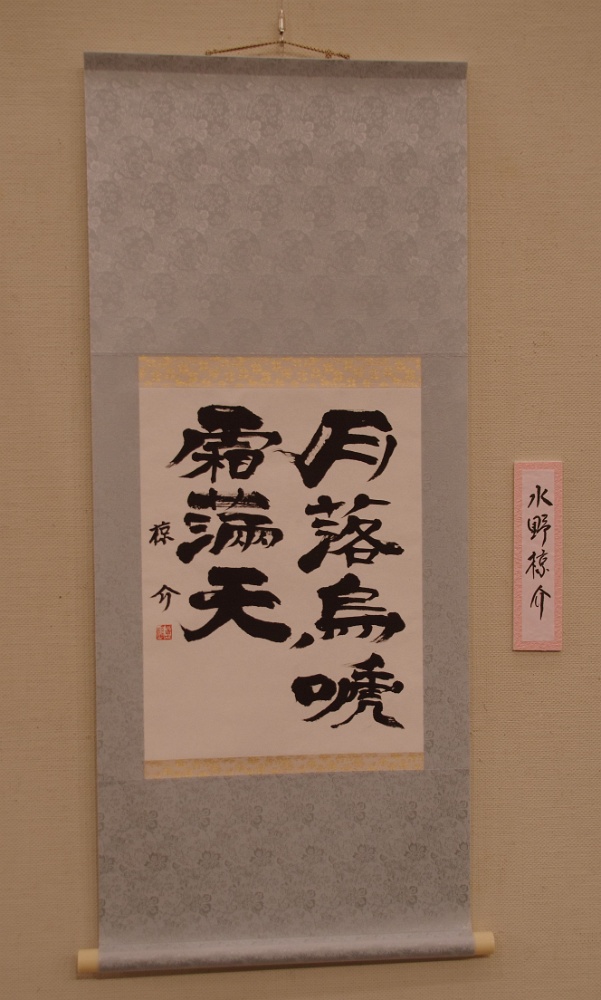 月落烏嗁
霜滿天
椋介
水野椋介